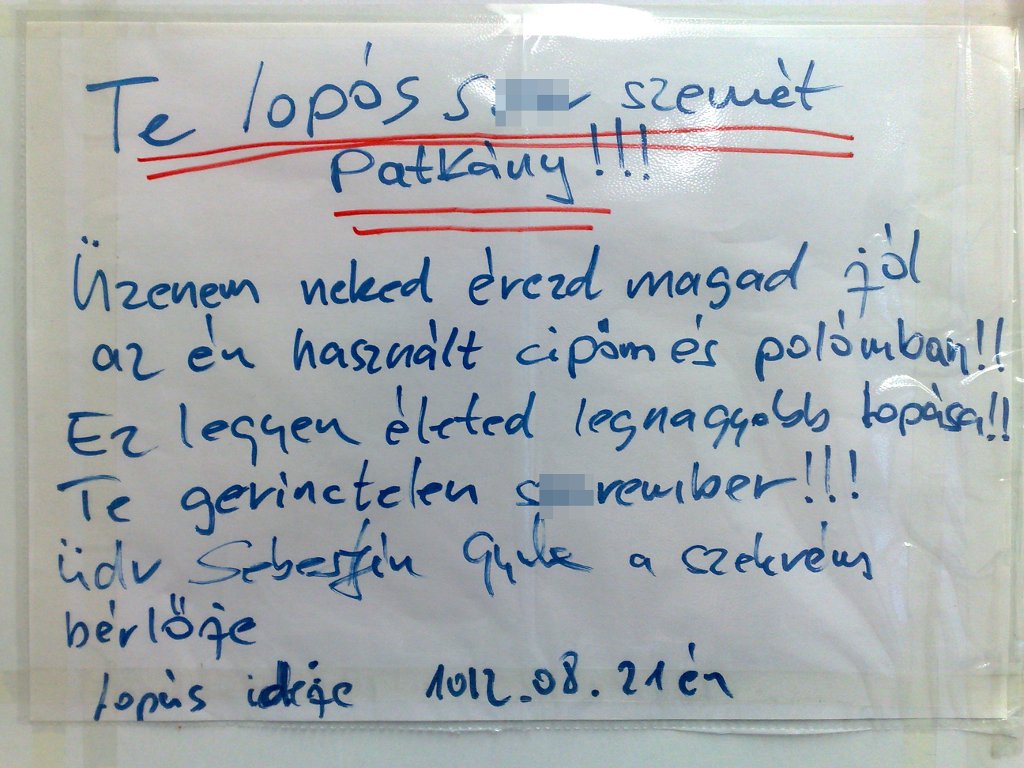 Te lopós szemét
Patkány!!!
Üzenem neked érezd magad jól
az én használt cipőm és polómban!!
Ez legyen életed legnagyobb lopása!!
Te gerinctelen
üdv Sebestín Gyula a szekrény
bérlője
lopás ideje 1012.08.21 én